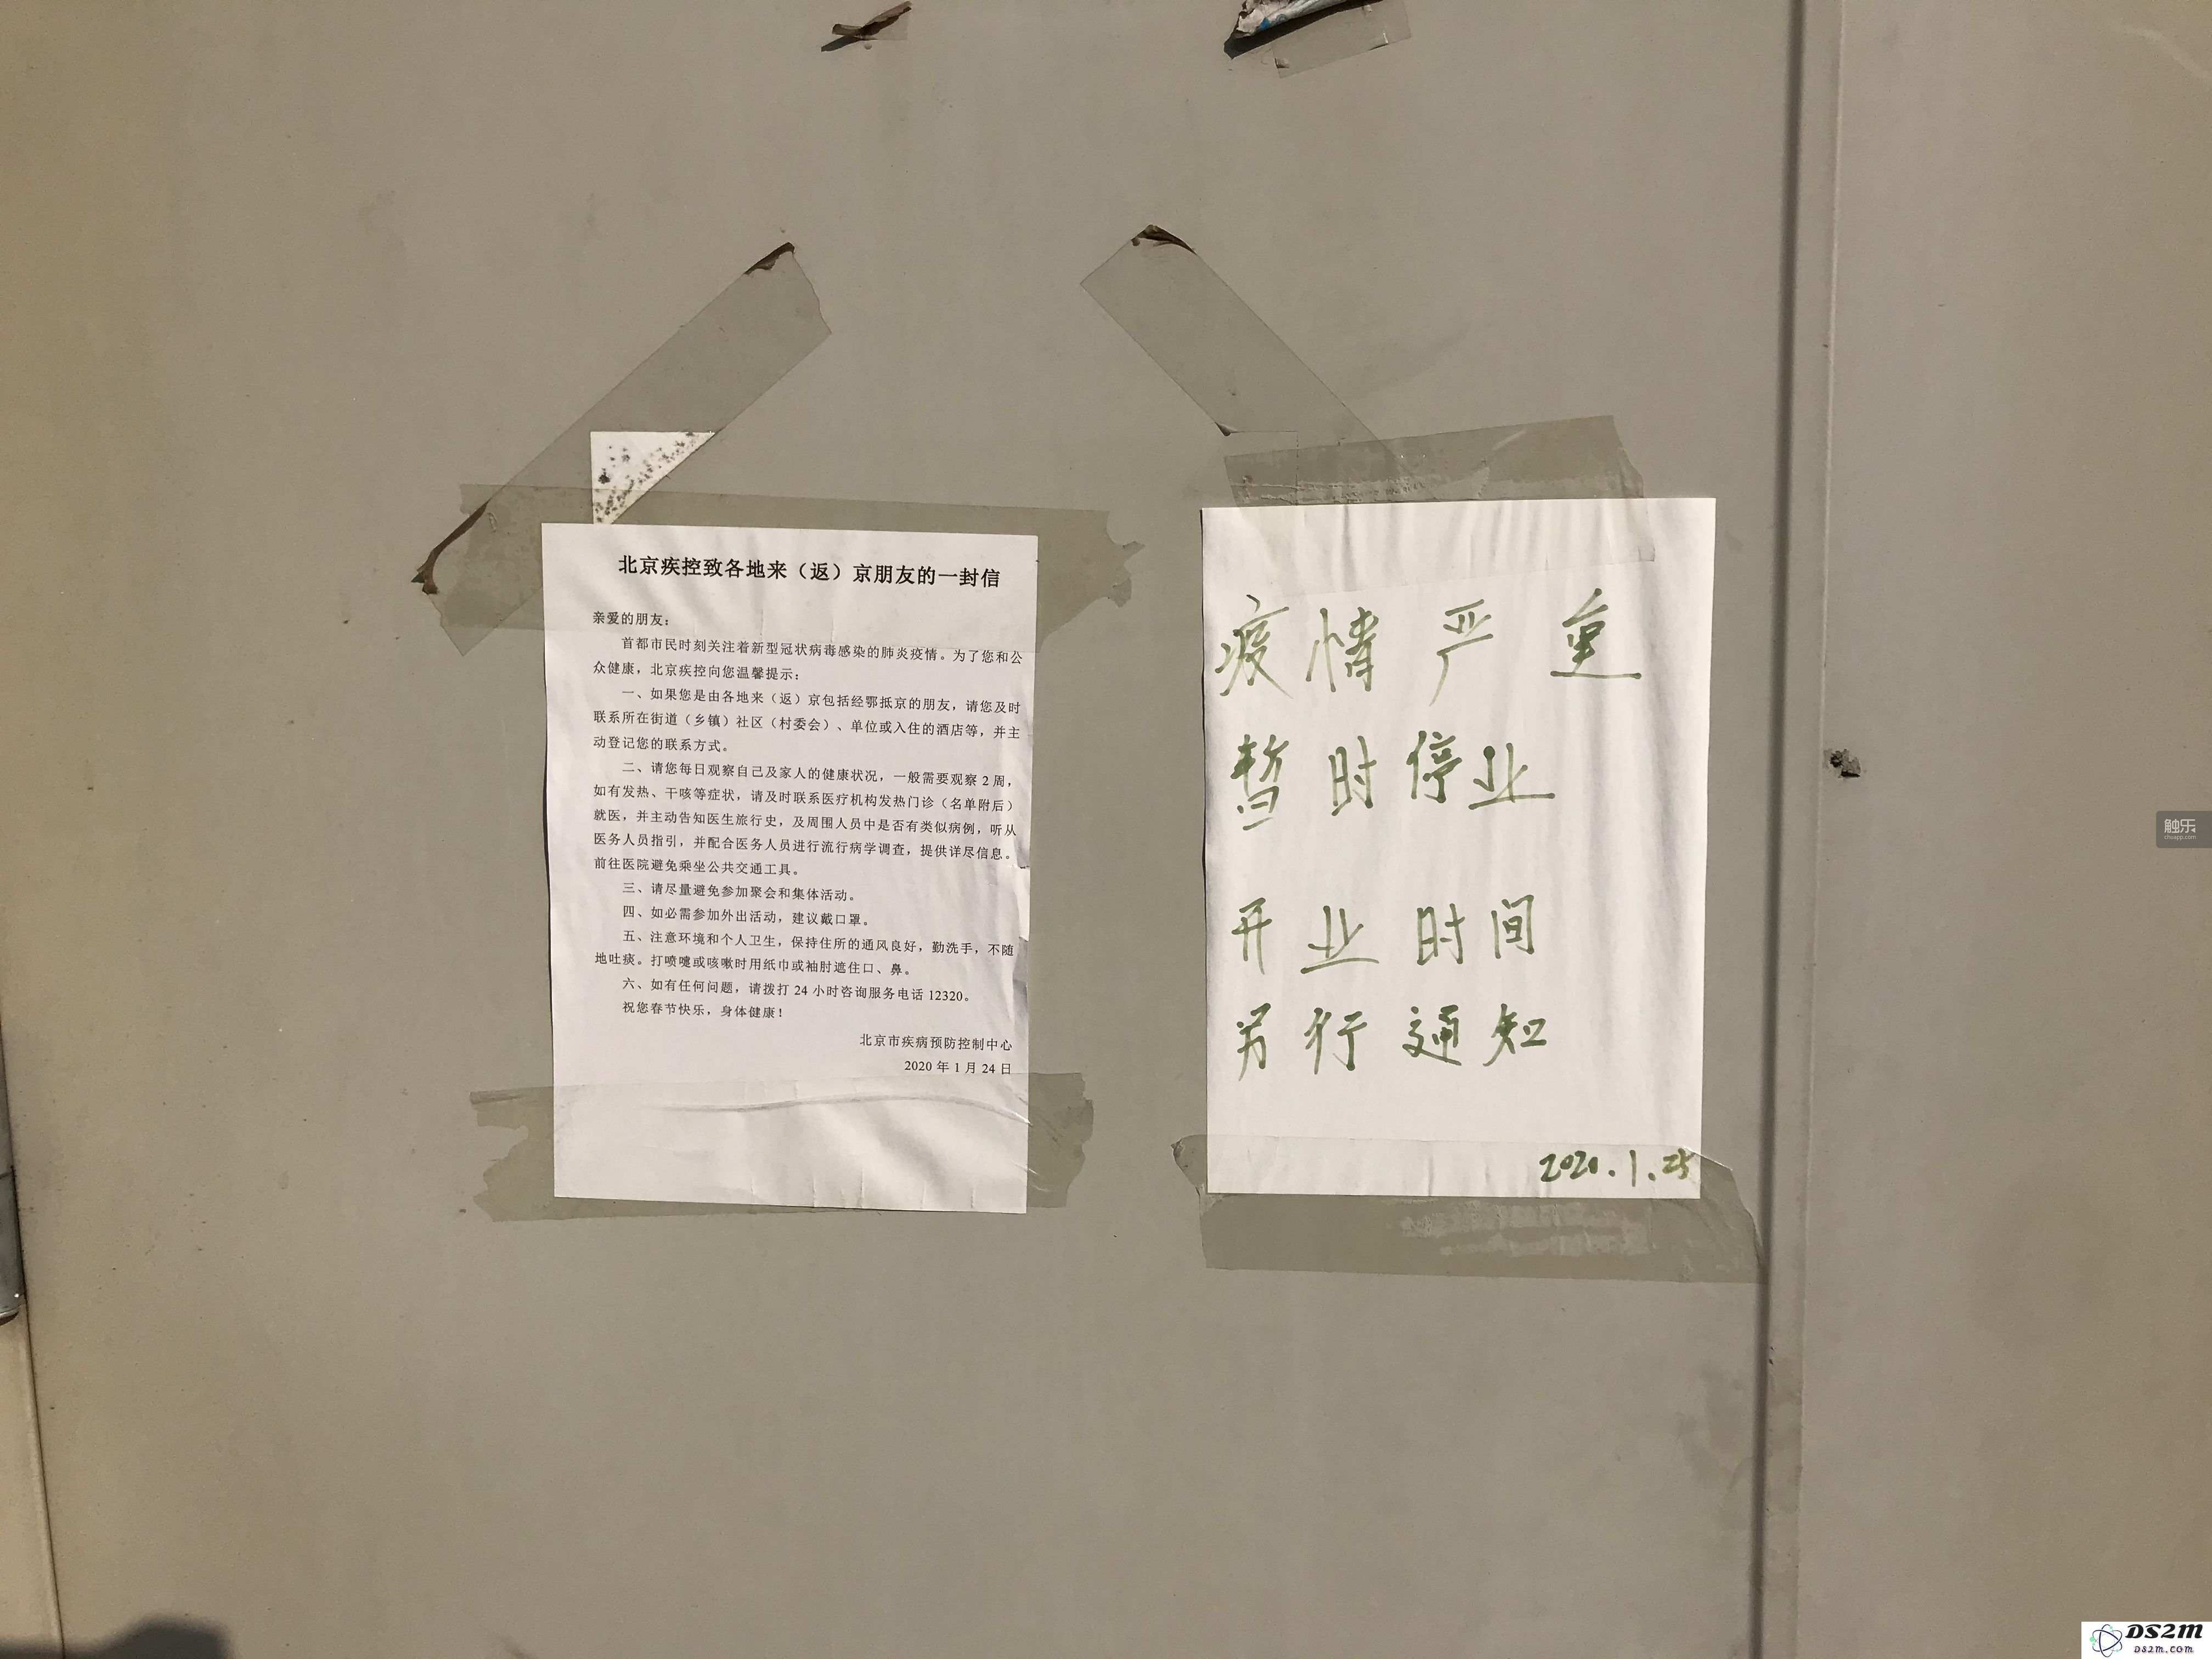 北京疾控致各地来（返）京朋友的一封信
亲爱的朋友：
首都市民时刻关注着新型冠状病毒感染的肺炎疫情。为了您和公
众健康，北京疾控向您温馨提示：
一、如果您是由各地来（返）京包括经鄂抵京的朋友，请您及时
联系所在街道（乡镇）社区（村委会）、单位或入住的酒店等，并主
动登记您的联系方式。
二、请您每日观察自己及家人的健康状况，一般需要观察 2 周，
如有发热、干咳等症状，请及时联系医疗机构发热门诊（名单附后）
就医，并主动告知医生旅行史，及周围人员中是否有类似病例，听从
医务人员指引，并配合医务人员进行流行病学调查，提供详尽信息。
前往医院避免乘坐公共交通工具。
三、请尽量避免参加聚会和集体活动。
四、如必需参加外出活动，建议戴口罩。
五、注意环境和个人卫生，保持住所的通风良好，勤洗手，不随
地吐痰。打喷嚏或咳嗽时用纸巾或袖肘遮住口、鼻。
六、如有任何问题，请拨打 24 小时咨询服务电话 12320。
祝您春节快乐，身体健康！
北京市疾病预防控制中心
2020 年 1 月 24 日
疫情严重
暂时停业
开业时间
另行通知
2020.1.25
触乐
chuapp.com
DS2M
DS2M.COM